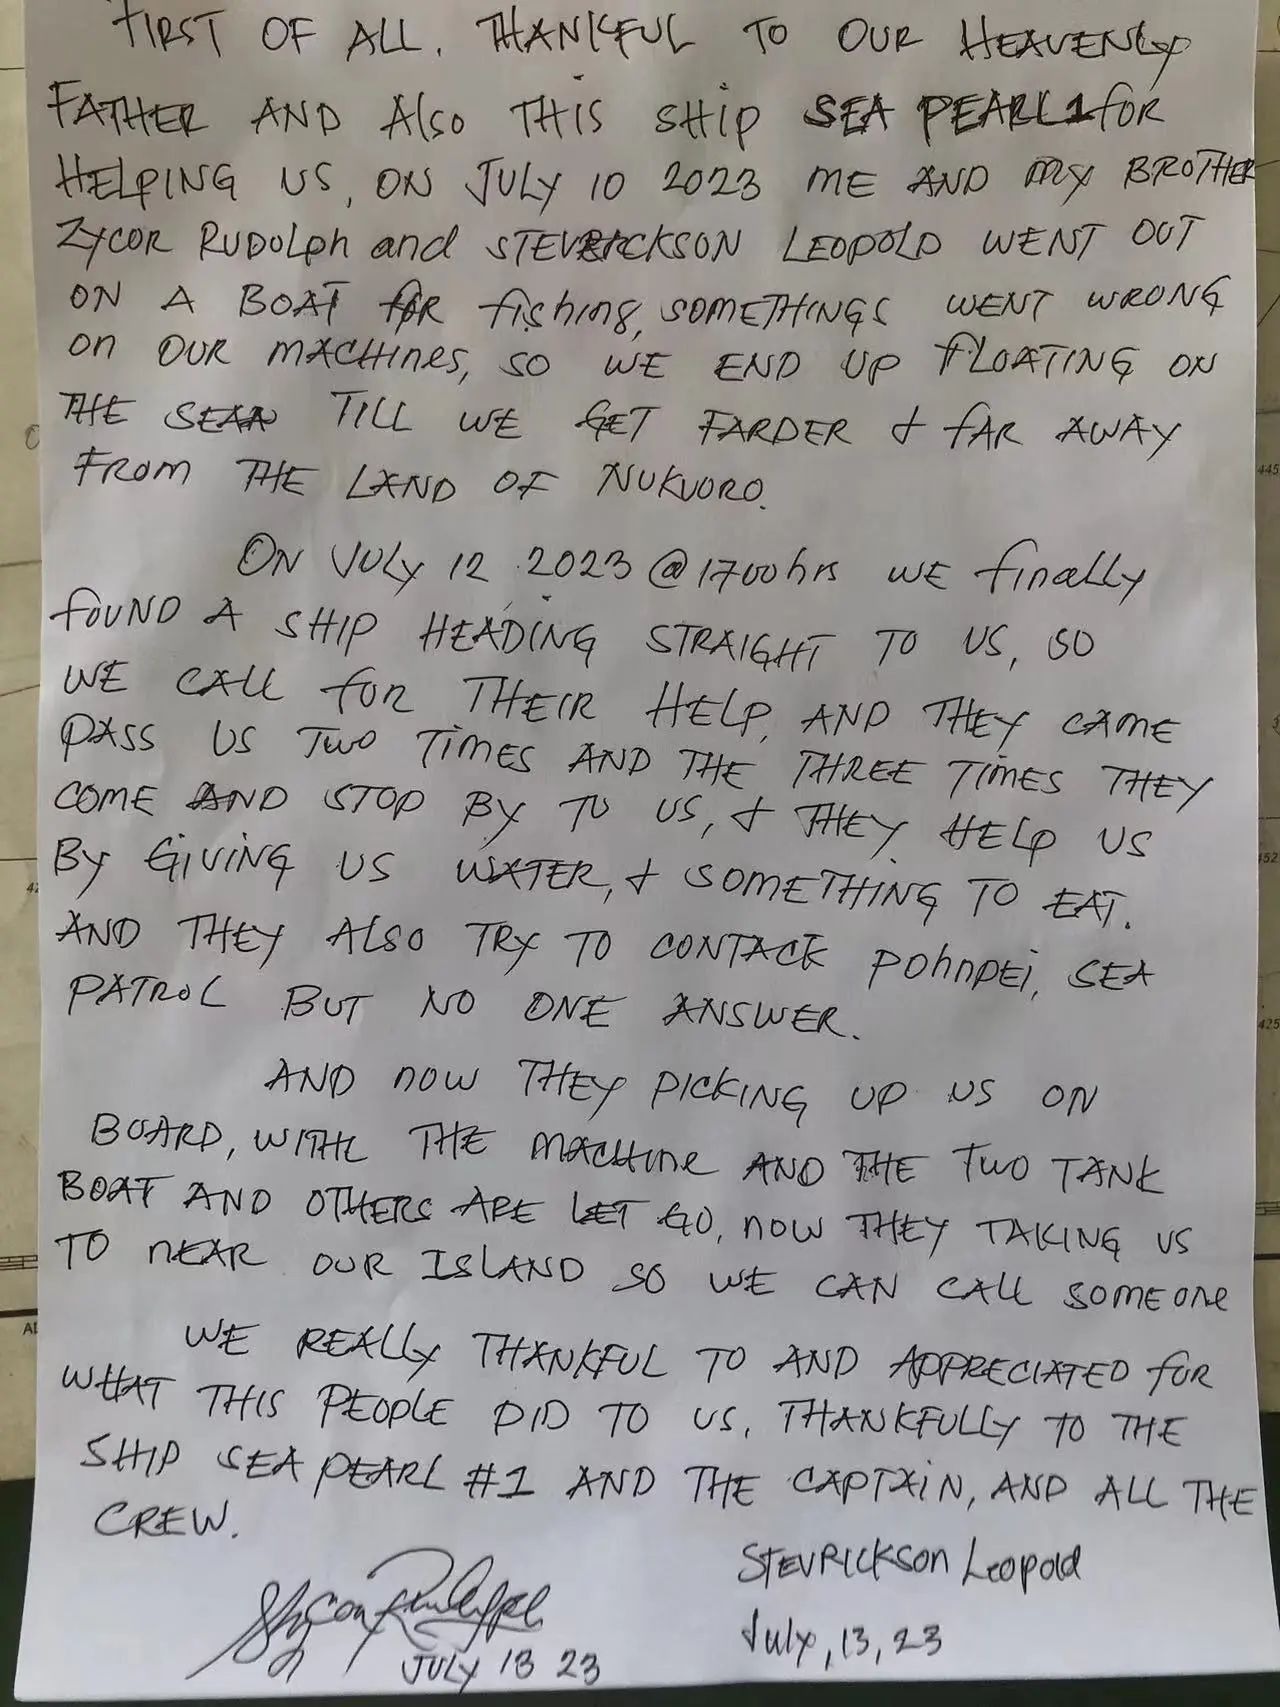 FIRST OF ALL. THANKFUL TO OUR HEAVENLY
FATHER AND Also THIS SHIP SEA PEARL 1 FOR
HELPING US, ON JULY 10 2023 ME AND MY BROTHER
ZYCOR RUDOLPH and STEVRICKSON LEOPOLD WENT OUT
ON A BOAT FOR fishing, SOMETHINGS WENT WRONG
on OUR MACHINES, SO WE END UP FLOATING ON
THE SEA TILL WE GET FARDER & FAR AWAY
FROM THE LAND OF NUKUORO.
ON JULY 12 2023 @1700hrs WE finally
FOUND A SHIP HEADING STRAIGHT TO US, SO
WE CALL FOR THEIR HELP, AND THEY CAME
PASS US TWO TIMES AND THE THREE TIMES THEY
COME AND STOP BY TO US, & THEY HELP US
BY GIVING US WATER, & SOMETHING TO EAT.
AND THEY ALSO TRY TO CONTACK POHNPEI, SEA
PATROL BUT NO ONE ANSWER.
AND NOW THEY PICKING UP US ON
BOARD, WITH THE MACHINE AND THE TWO TANK
BOAT AND OTHERS ARE LET GO, NOW THEY TAKING US
TO NEAR OUR ISLAND SO WE CAN CALL SOMEONE
WE REALLY THANKFUL TO AND APPRECIATED FOR
WHAT THIS PEOPLE DID TO US, THANKFULLY TO THE
SHIP SEA PEARL #1 AND THE CAPTAIN, AND ALL THE
CREW.
STEVRICKSON Leopold
JULY 13 23
July, 13, 23
445
452
425